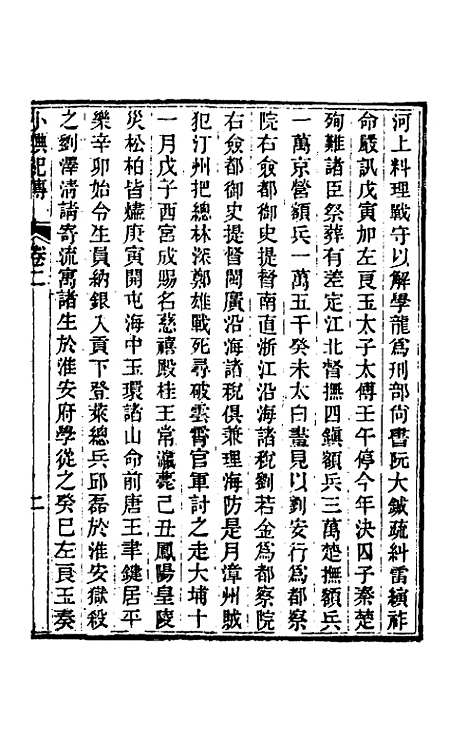 河上料理戰守以解學龍爲刑部尙書阮大鋮疏糾雷縯祚
命嚴訊戊寅加左良玉太子太傅壬午停今年決囚予秦楚
殉難諸臣祭葬有差定江北督撫四鎭額兵三萬楚撫額兵
一萬京營額兵一萬五千癸未太白晝見以劉安行爲都察
院右僉都御史提督南直浙江沿海諸稅劉若金爲都察院
右僉都御史提督閩廣沿海諸稅俱兼理海防是月漳州賊
犯汀州把總林深鄭雄戰死尋破雲霄官軍討之走大埔十
一月戊子西宮成賜名慈禧殿桂王常瀛薨己丑鳳陽皇陵
災松柏皆燼庚寅開屯海中玉環諸山命前唐王聿鍵居平
樂辛卯始令生員納銀入貢下登萊總兵邱磊於淮安獄殺
之劉澤淸請寄流寓諸生於淮安府學從之癸巳左良玉奏
小腆紀傳 卷二 二